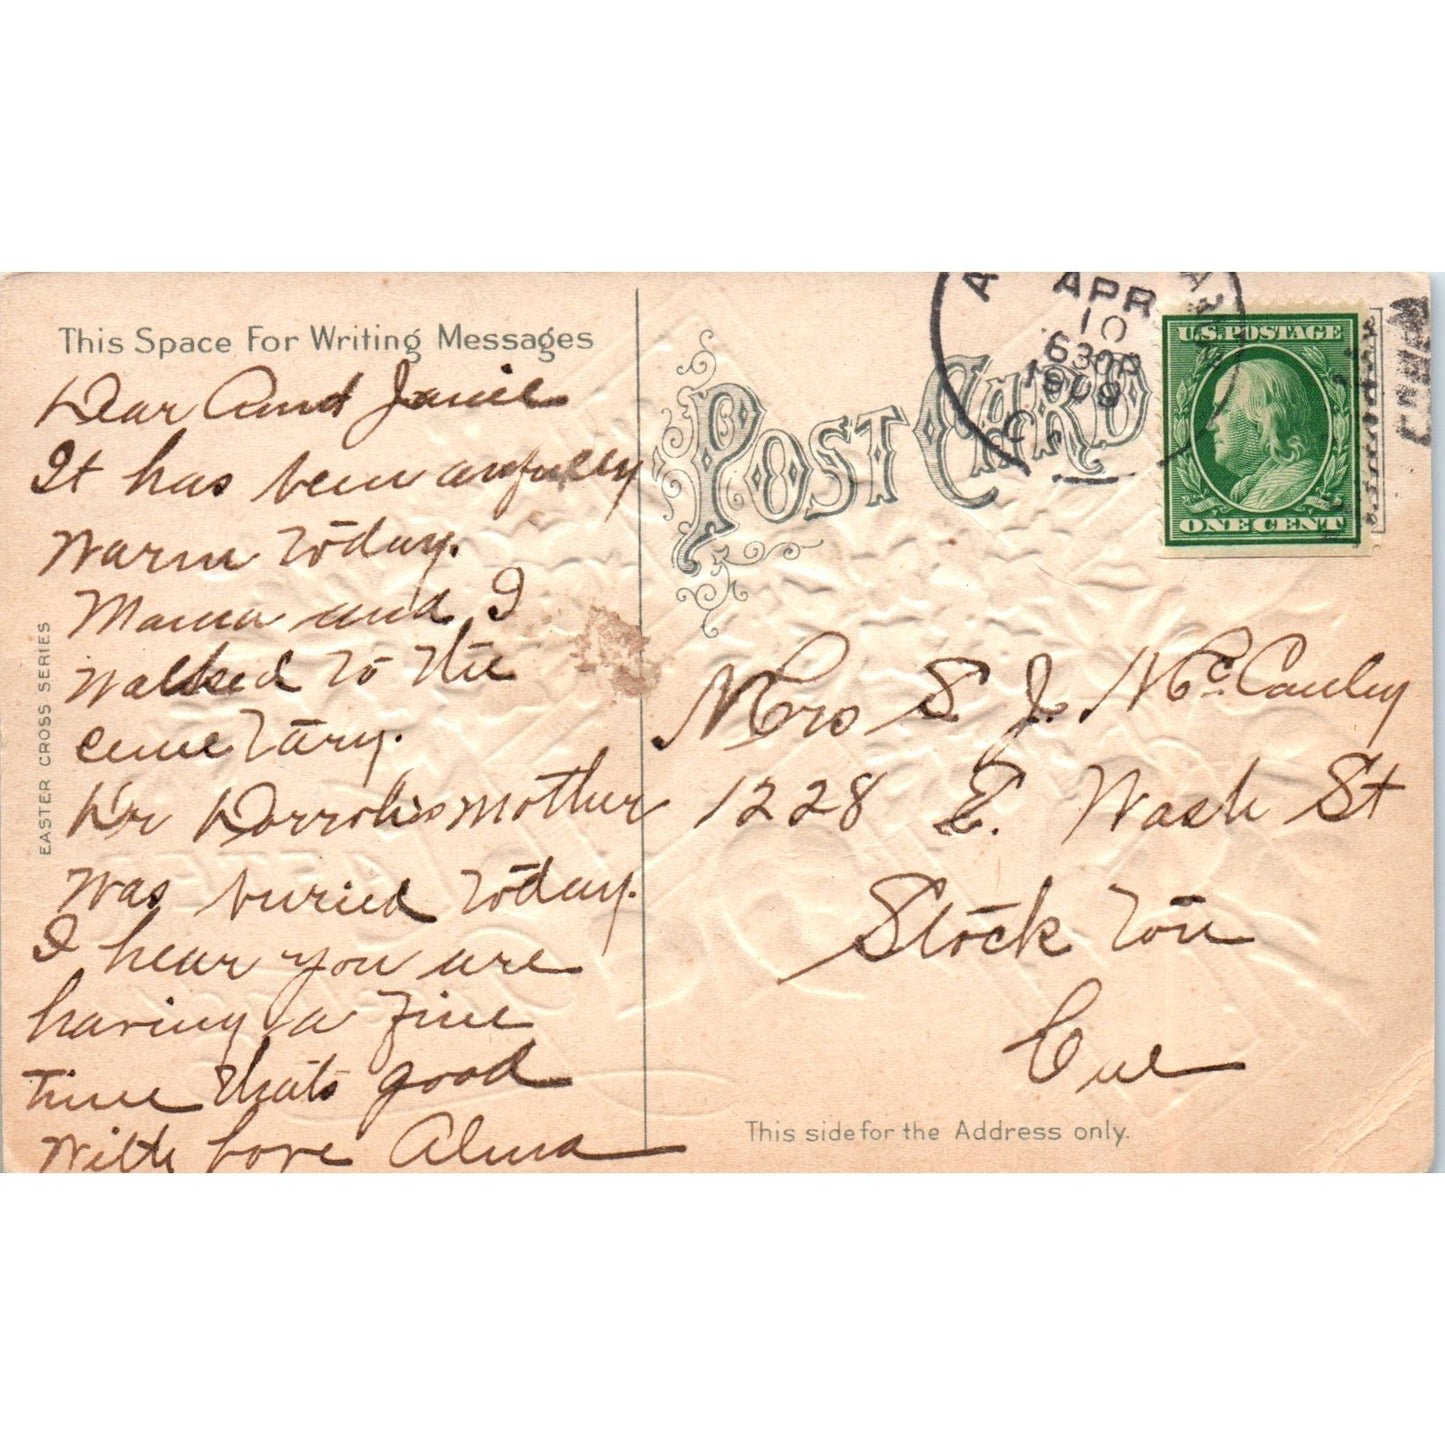 This Space For Writing Messages
Dear Aunt Janie
It has been awfully
warm today.
Mama and I
walked to the
cemetary.
Dr mother
was buried today.
I hear you are
having a fine
time thats good
with love Alma
EASTER CROSS SERIES
POST CARD
APR
10
630P
1909
U.S. POSTAGE
ONE CENT
Mrs S. J. McCauley
1228 E. Wash St
Stockton
Cal
This side for the Address only.